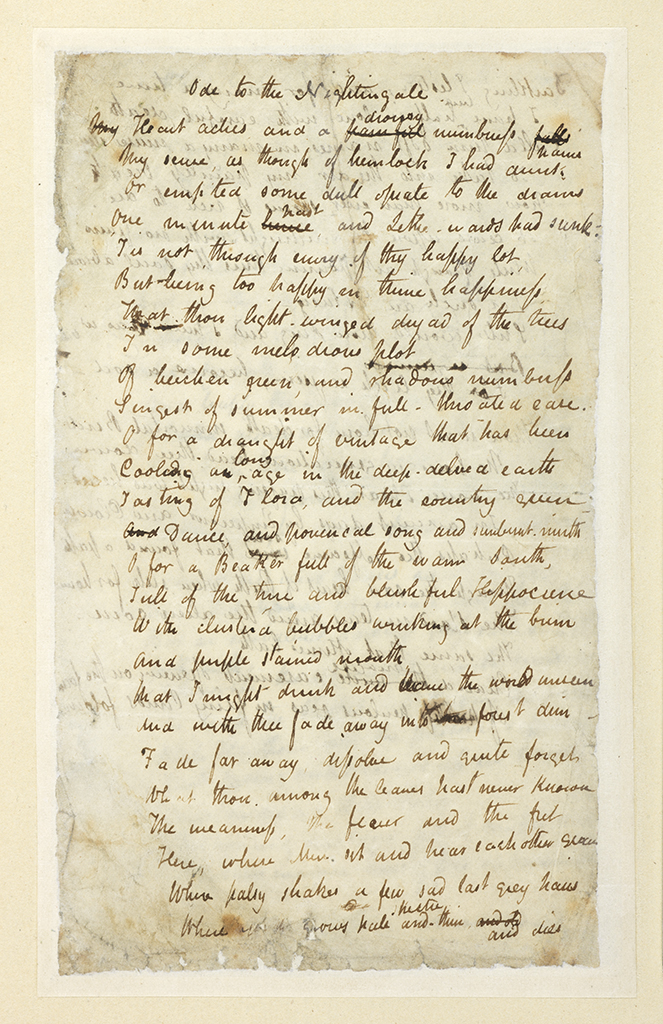 Ode to the Nightingale
My Heart aches and a drowsy painful numbness falls
My sense, as though of hemlock I had drunk pains
Or emptied some dull opiate to the drains
One minute hence past and Lethe-wards had sunk-
'Tis not through envy of thy happy lot
But being too happy in thine happiness
That thou light-winged dryad of the trees
In some melodious plot
Of beechen green, and shadows numberless
Singest of summer in full-throated ease.
O for a draught of vintage that has been
Cooling an long age in the deep-delved earth
Tasting of Flora, and the country green
And Dance, and provencal song and sunburnt mirth
O for a Beaker full of the warm South,
Full of the true and blushful Hippocrene
With cluster'd bubbles winking at the brim
And purple stained mouth
That I might drink and leave the world unseen
And with thee fade away into the forest dim-
Fade far away, dissolve and quite forget
What thou among the leaves hast never known
The weariness, the fever and the fret
Here, where Men sit and hear each other groan
Where palsy shakes a few sad last grey hairs
Where grows pale spectre and thin and old and dies